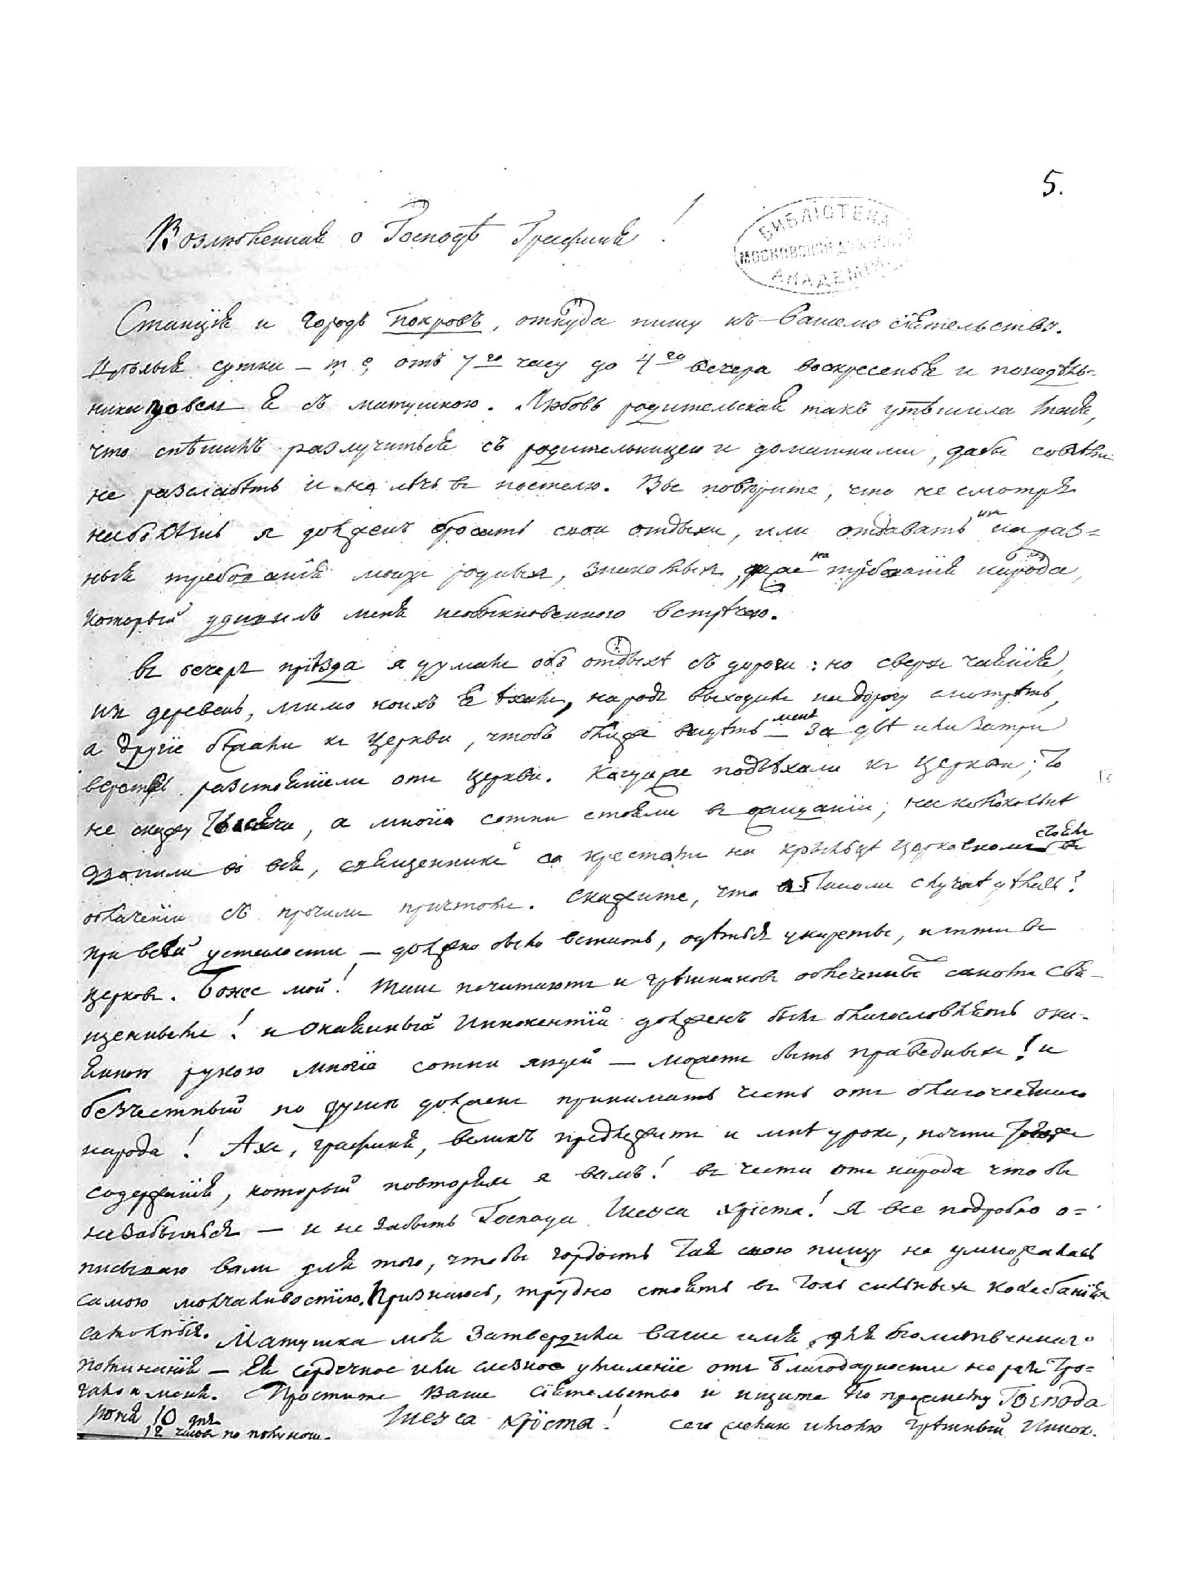 5.
Возлюбленная о Господѣ Графиня!
БИБЛІОТЕКА
МОСКОВСКОЙ ДУХОВНОЙ
АКАДЕМІИ
Станція и городъ Покровъ, откуда пишу къ Вашему сіятельству.
Цѣлыя сутки – т. е. отъ 7го часу до 4го вечера воскресенья и понедѣль-
ника провелъ я съ матушкою. Любовь родительская такъ утѣшила меня,
что спѣшилъ разлучиться съ родительницею и домашними, дабы совсѣмъ
не разслабѣть и не лечь въ постелю. Вы повѣрите, что не смотря
на болѣзнь я долженъ бросить свой отдыхъ, или отдавать на раз=
ныя требованія моихъ родныхъ, знакомыхъ, даже на требованія народа,
который удивилъ меня необыкновенною встрѣчею.
въ вечеръ пріѣзда я думалъ объ отдыхѣ съ дороги: но сверхъ чаянія,
изъ деревень, мимо коихъ я ѣхалъ, народъ выходилъ на дорогу смотрѣть,
а другіе бѣжали къ церкви, чтобъ ближе видѣть меня за двѣ или за три
версты разстояніемъ отъ церкви. Когда же подъѣхали къ церкви; то
не скажу тысячи, а многія сотни стояли въ ожиданіи; на колокольнѣ
звонили во вся, священники со крестами на крыльцѣ церковномъ стояли въ
облаченіи съ прочимъ причтомъ. Скажите, что въ такомъ случаѣ дѣлать?
При всей усталости – должно было встать, одѣться у кареты, итти въ
церковь. Боже мой! Такъ почитаютъ и грѣшниковъ облеченныхъ саномъ свя-
щеннымъ! и окаянный Иннокентій долженъ былъ благословлять ока-
янною рукою многія сотни людей – можетъ быть праведныхъ! и
безчестный по душѣ долженъ принимать честь отъ благочестиваго
народа! Ахъ, графиня, великъ предлежитъ и мнѣ урокъ, почти того же
содержанія, который повторялъ я вамъ! въ чести отъ народа чтобы
не забыться – и не забыть Господа Іисуса Христа! Я все подробно о=
писываю вамъ для того, чтобы гордость тая свою пищу не умножалась
самою молчаливостію. Признаюсь, трудно стоять въ толь сильныхъ колебаніяхъ
самолюбія. Матушка моя затвердила ваше имя для всемолитвеннаго
поминанія – Ея сердечное или слезное умиленіе отъ благодарности не разъ тро=
гало и меня. Простите Ваше сіятельство и ищите по прежнему Господа
Іисуса Христа!
Іюня 10 дня
12 часовъ по полуночи.
грѣшный Иннок.